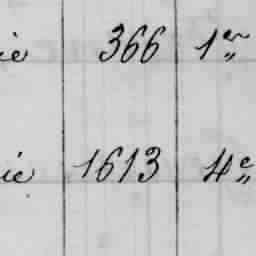 ie 366 1er„
ie 1613 4e„